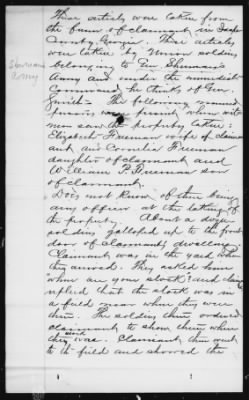 These articles were taken from
the farm of claimant in
County Georgia. These articles
were taken by Union soldiers
belonging to Gen Sherman's
Army and under the immediate
Command he thinks of Gen
Smith - The following named
persons were present when wit-
ness saw the property taken:
Elizabeth Freeman wife of claim-
ant and Cornelia Freeman
daughter of claimant and
William P. Freeman son
of claimant.
Does not know of there being
any officer at the taking of
the property. About a dozen
soldiers galloped up to the front
door of claimants dwelling
Claimant was in the yard when
they arrived. They asked him
"where are your stock" and
replied that the stock was in
a field near where they were
then. The soldiers then ordered
claimant to show them where
they was. Claimant then went
to the field and showed the
Shermans
Army